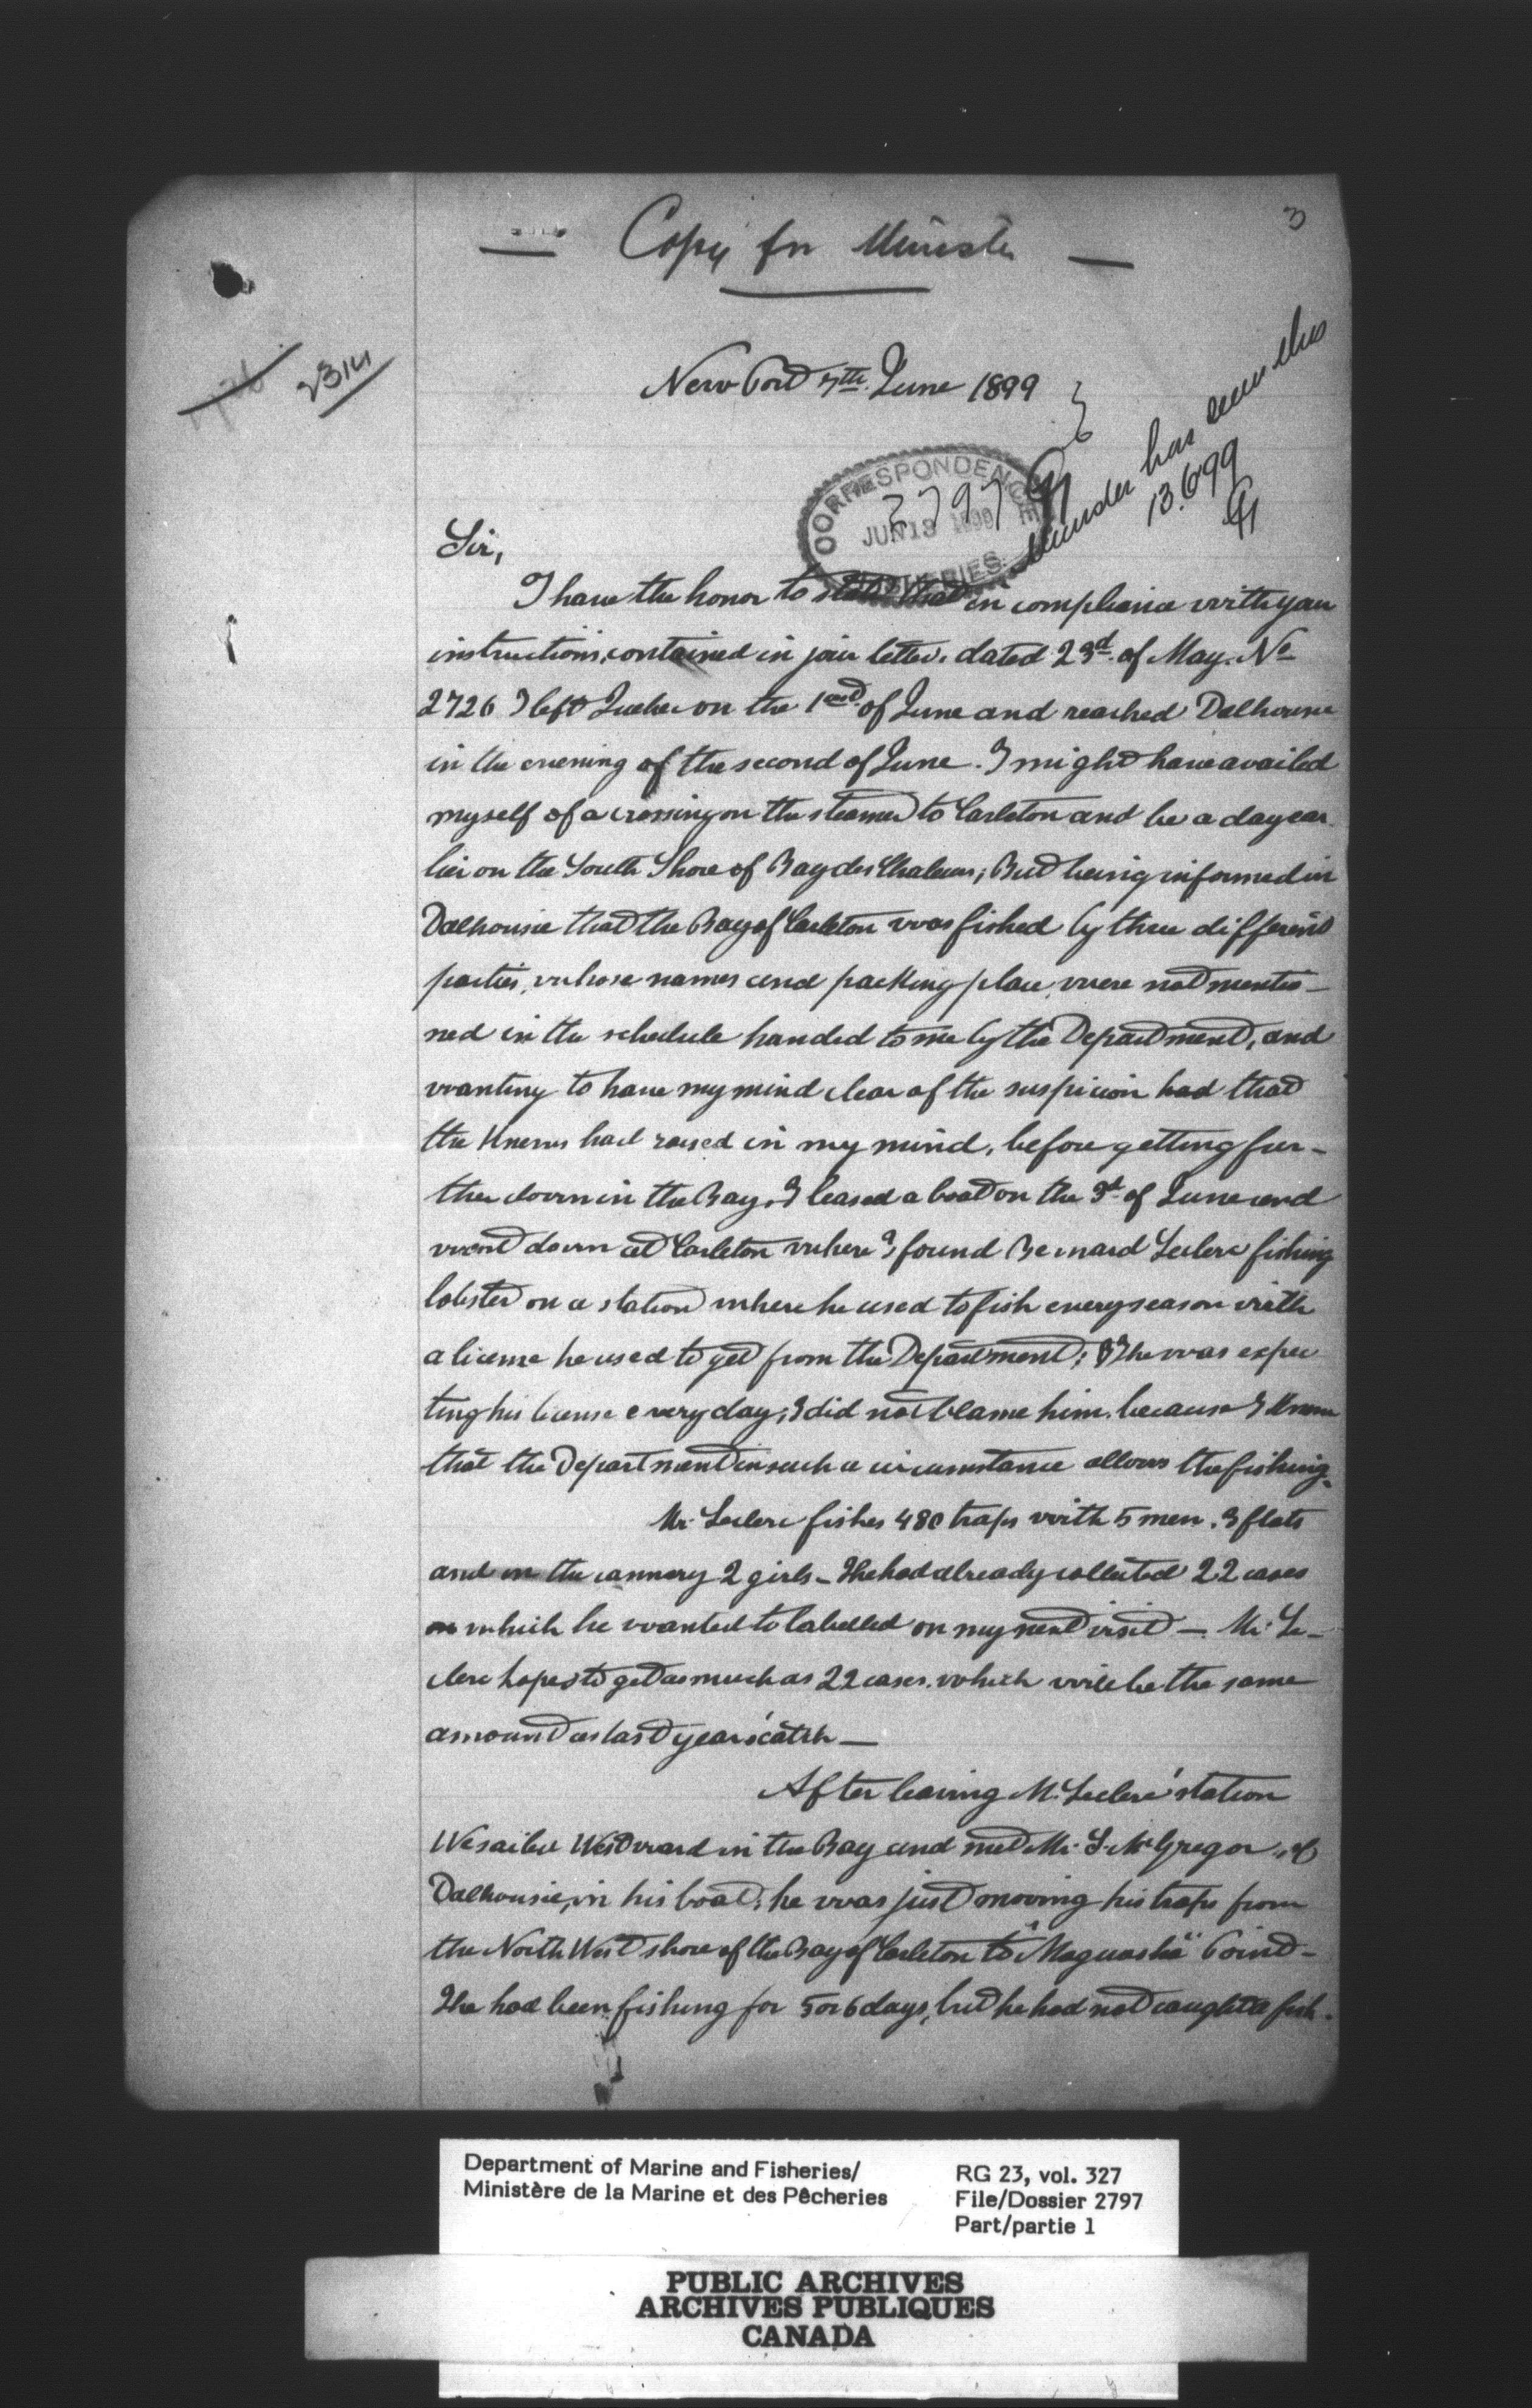 3
— Copy for Minister —
2314
New Port 7th June 1899
Minister has seen this
13.6.99
CORRESPONDENCE
2797
JUN 13 1899
FISHERIES
Sir,
I have the honor to state that in compliance with your
instructions, contained in your letter, dated 23d of May. No
2726 I left Quebec on the 1st of June and reached Dalhousie
in the evening of the second of June. I might have availed
myself of a crossing on the steamer to Carleton and be a day ear
lier on the South Shore of Bay des Chaleurs; But being informed in
Dalhousie that the Bay of Carleton was fished by three different
parties, whose names and packing place, were not mentio-
ned in the schedule handed to me by the Department, and
wanting to have my mind clear of the suspicion had that
the knews had raised in my mind, before getting fur-
ther down in the Bay, I leased a boat on the 3d of June and
went down at Carleton where I found Bernard Leclerc fishing
lobster on a station where he used to fish every season with
a license he used to get from the Department; he was expec
ting his license every day; I did not blame him, because I knew
that the Department in such a circumstance allows the fishing.
Mr. Leclerc fishes 480 traps with 5 men. 3 flats
and in the cannery 2 girls - He had already collected 22 cases
which he wanted to labelled on my next visit — Mr. Le-
clerc hopes to get as much as 22 cases. which will be the same
amount as last year's catch —
After leaving M. Leclerc' station
We sailed Westward in the Bay and met Mr. S. McGregor, of
Dalhousie, in his boat; he was just moving his traps from
the North West shore of the Bay of Carleton to "Maguasha" Point -
He had been fishing for 5 or 6 days, but he had not caught a fish.
Department of Marine and Fisheries/
Ministère de la Marine et des Pêcheries
RG 23, vol. 327
File/Dossier 2797
Part/partie 1
PUBLIC ARCHIVES
ARCHIVES PUBLIQUES
CANADA